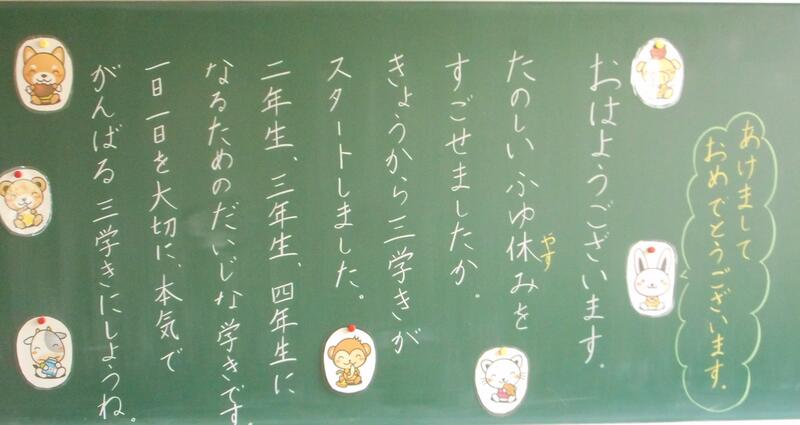 あけまして
おめでとうございます。
おはようございます。
たのしいふゆ休みを
やす
すごせましたか。
きょうから三学きが
スタートしました。
二年生、三年生、四年生に
なるためのだいじな学きです。
一日一日を大切に、本気で
がんばる三学きにしようね。